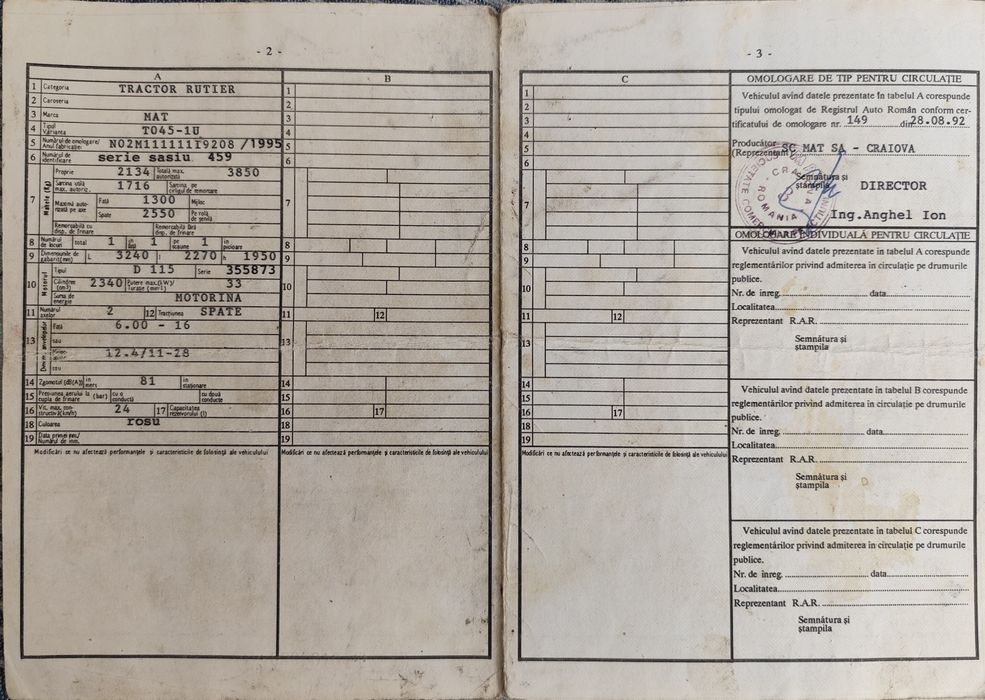 - 2 -
A
1 Categoria TRACTOR RUTIER
2 Caroseria
3 Marca MAT
4 Tipul Varianta T045-1U
5 Numărul de omologare/ Anul fabricației NO2M111111I9208 /1995
6 Numărul de identificare serie sasiu 459
7 Masele (Kg)
Proprie 2134 Totală max. autorizată 3850
Sarcina utilă max. autoriz. 1716 Sarcina pe cîrligul de remorcare
Maximă autorizată pe axe Față 1300 Mijloc
Spate 2550 Pe roia de șenilă
Remorcabilă cu disp. de frînare Remorcabilă fără disp. de frînare
8 Numărul de locuri total 1 în față 1 pe scaune 1 în picioare
9 Dimensiunile de gabarit(mm) L 3240 l 2270 h 1950
10 Motorul
Tipul D 115 Serie 355873
Cilindree (cm³) 2340 Putere max.(kW)/ Turație (min⁻¹) 33
Sursa de energie MOTORINA
11 Numărul axelor 2 12 Tracțiunea SPATE
13 Față 6.00 - 16
sau
12.4/11-28
sau
14 Zgomotul (dB(A)) în mers 81 în staționare
15 Presiunea aerului la cupla de frînare (bar) cu o conductă cu două conducte
16 Vit. max. constructivă(km/h) 24 17 Capacitatea rezervorului (l)
18 Culoarea rosu
19
Modificări ce nu afectează performanțele și caracteristicile de folosință ale vehiculului
B
1
2
3
4
5
6
7
8
9
10
11 12
13
14
15
16 17
18
19
Modificări ce nu afectează performanțele și caracteristicile de folosință ale vehiculului
- 3 -
C
1
2
3
4
5
6
7
8
9
10
11 12
13
14
15
16 17
18
19
Modificări ce nu afectează performanțele și caracteristicile de folosință ale vehiculului
OMOLOGARE DE TIP PENTRU CIRCULAȚIE
Vehiculul avînd datele prezentate în tabelul A corespunde
tipului omologat de Registrul Auto Român conform cer-
tificatului de omologare nr. 149 din 28.08.92
Producător
(Reprezentant) SC MAT SA - CRAIOVA
Semnătura și
ștampila
DIRECTOR
Ing.Anghel Ion
CRAIOVA
ROMANIA
OMOLOGARE INDIVIDUALĂ PENTRU CIRCULAȚIE
Vehiculul avînd datele prezentate în tabelul A corespunde
reglementărilor privind admiterea în circulație pe drumurile
publice.
Nr. de înreg. data
Localitatea
Reprezentant R.A.R.
Semnătura și
ștampila
Vehiculul avînd datele prezentate în tabelul B corespunde
reglementărilor privind admiterea în circulație pe drumurile
publice.
Nr. de înreg. data
Localitatea
Reprezentant R.A.R.
Semnătura și
ștampila
Vehiculul avînd datele prezentate în tabelul C corespunde
reglementărilor privind admiterea în circulație pe drumurile
publice.
Nr. de înreg. data
Localitatea
Reprezentant R.A.R.
Semnătura și
ștampila